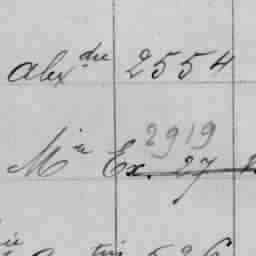 Alex.dre 2554
2919
M.ie Ex. 27